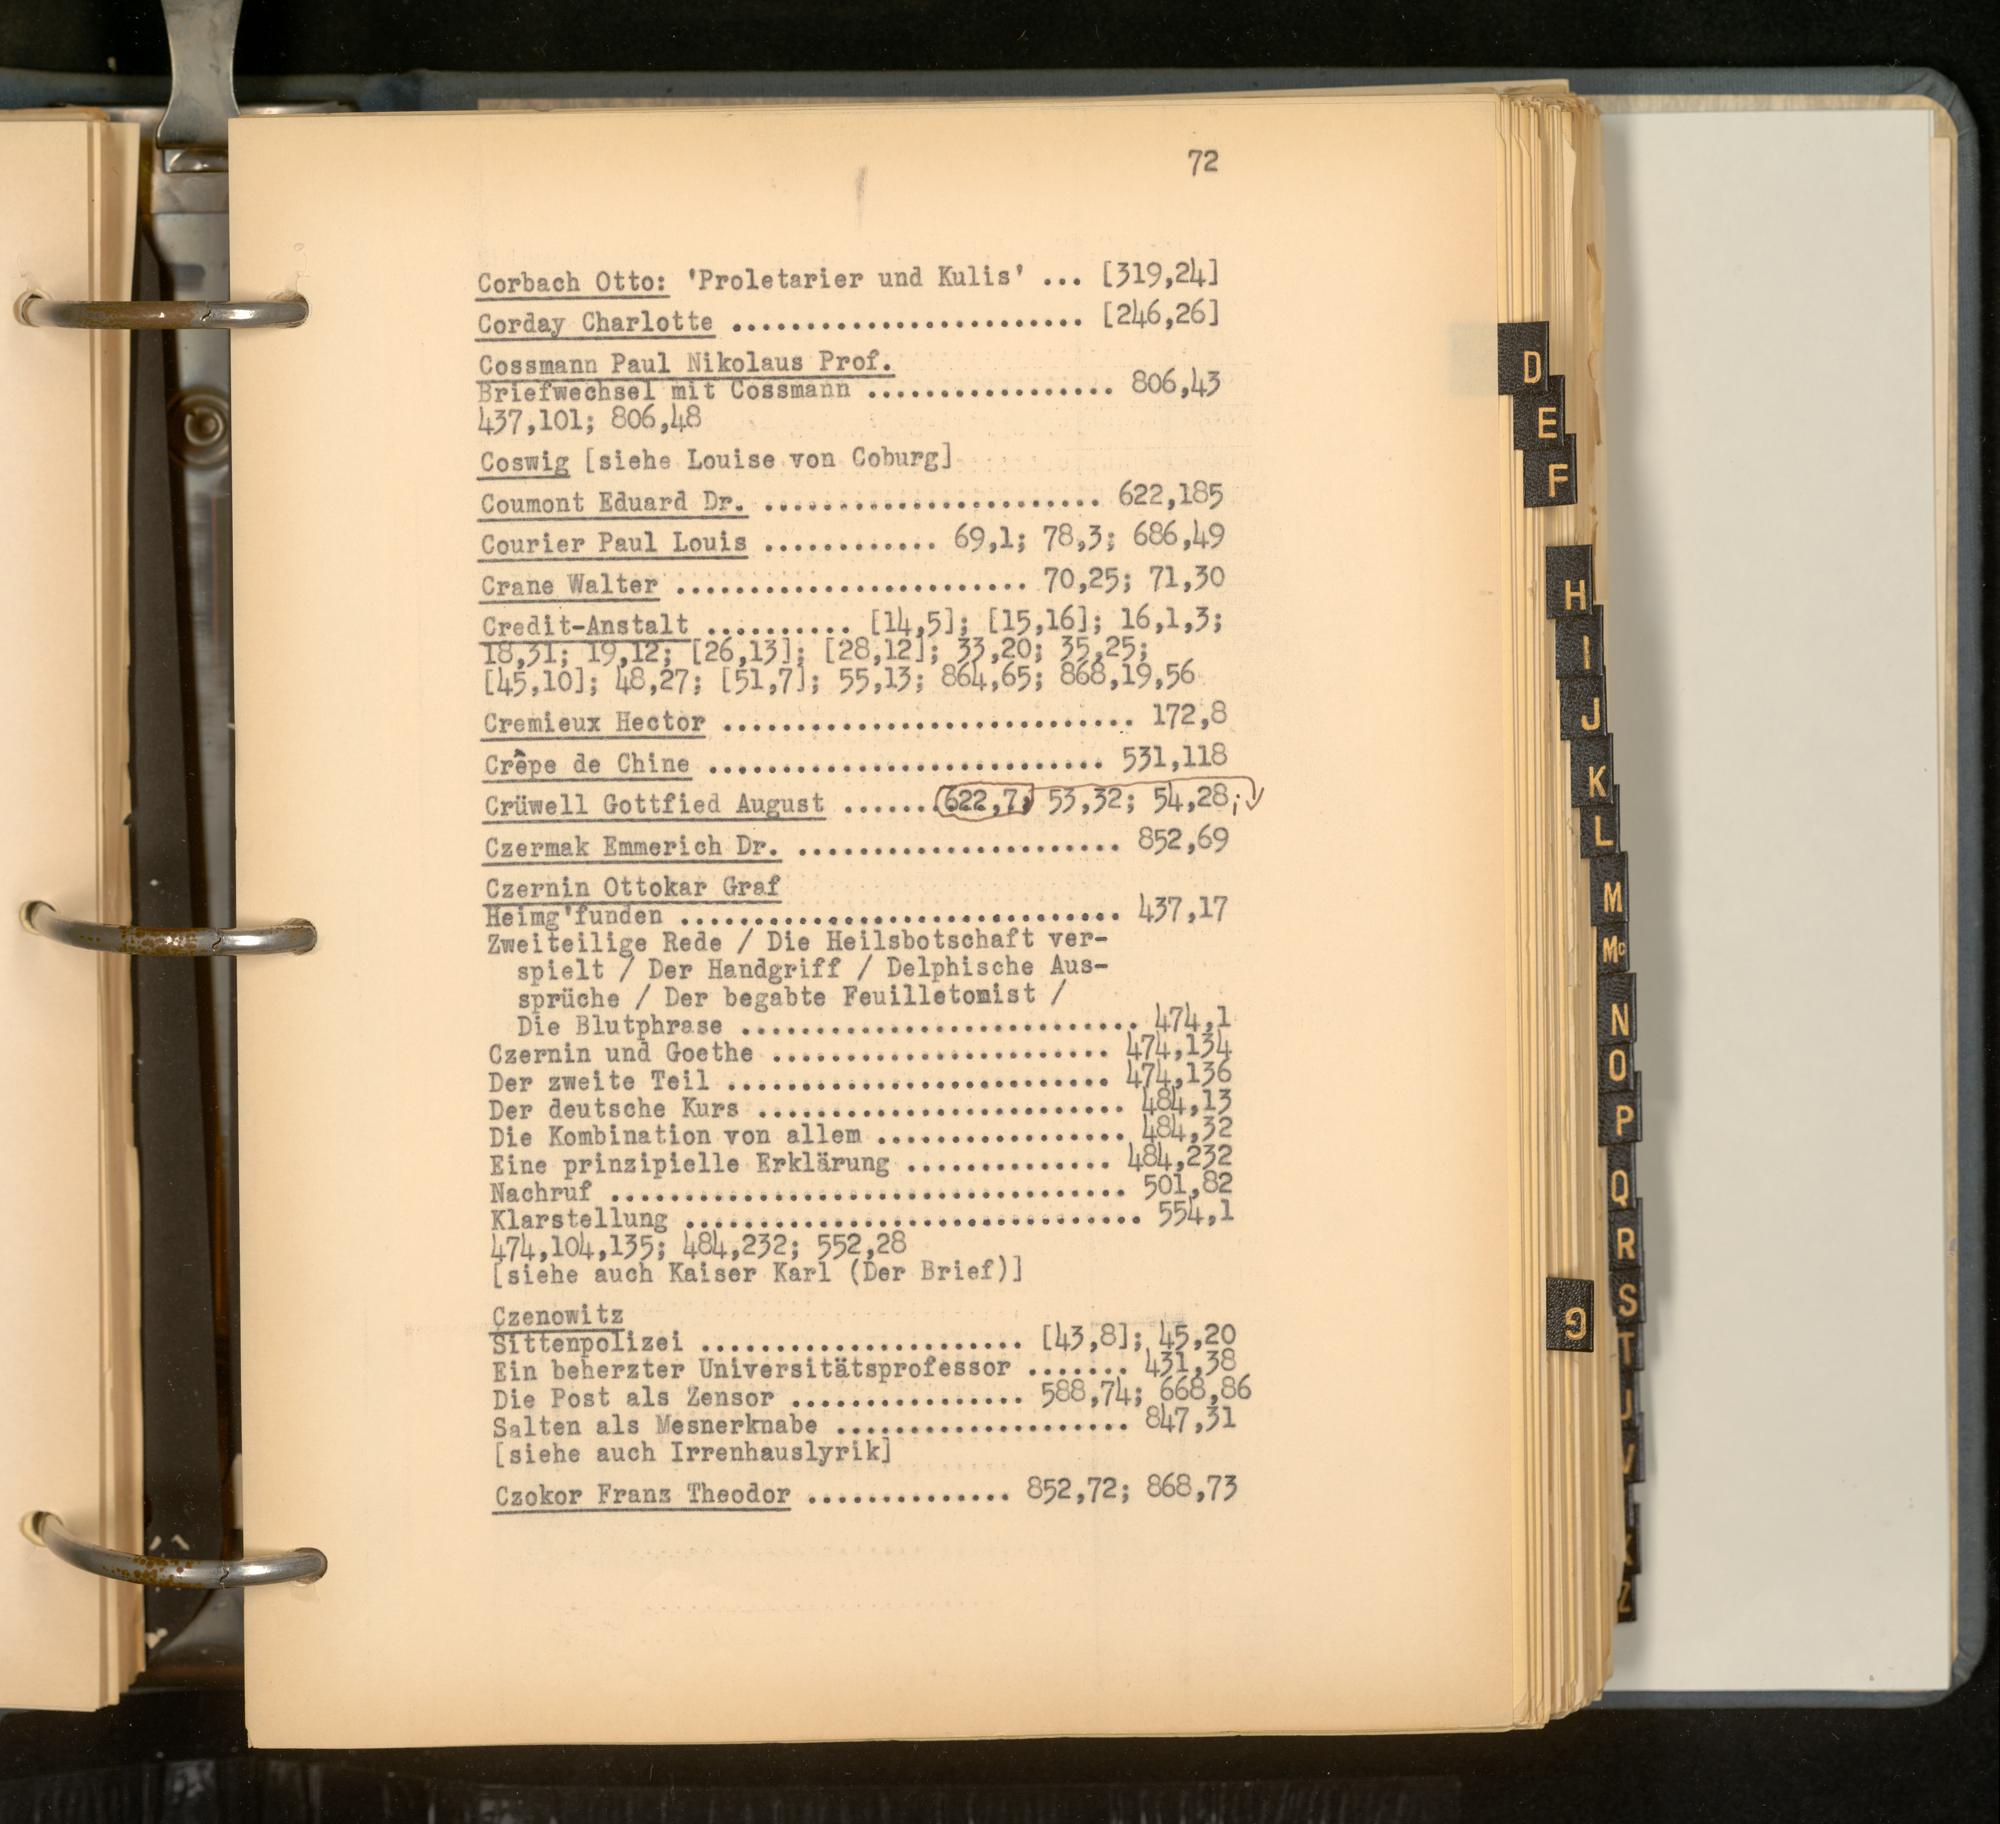 72
Corbach Otto: 'Proletarier und Kulis' ... [319,24]
Corday Charlotte ........................ [246,26]
Cossmann Paul Nikolaus Prof.
Briefwechsel mit Cossmann ................. 806,43
437,101; 806,48
Coswig [siehe Louise von Coburg]
Coumont Eduard Dr. ....................... 622,185
Courier Paul Louis ............ 69,1; 78,3; 686,49
Crane Walter ........................ 70,25; 71,30
Credit-Anstalt .......... [14,5]; [15,16]; 16,1,3;
18,31; 19,12; [26,13]; [28,12]; 33,20; 35,25;
[45,10]; 48,27; [51,7]; 55,13; 864,65; 868,19,56
Cremieux Hector ............................ 172,8
Crêpe de Chine ........................... 531,118
Crüwell Gottfied August .......622,7; 53,32; 54,28;
Czermak Emmerich Dr. ...................... 852,69
Czernin Ottokar Graf
Heimg'funden .............................. 437,17
Zweiteilige Rede / Die Heilsbotschaft ver-
spielt / Der Handgriff / Delphische Aus-
sprüche / Der begabte Feuilletonist /
Die Blutphrase ........................... 474,1
Czernin und Goethe ....................... 474,134
Der zweite Teil .......................... 474,136
Der deutsche Kurs ......................... 484,13
Die Kombination von allem ................. 484,32
Eine prinzipielle Erklärung .............. 484,232
Nachruf ................................... 501,82
Klarstellung ............................... 554,1
474,104,135; 484,232; 552,28
[siehe auch Kaiser Karl (Der Brief)]
Czenowitz
Sittenpolizei ...................... [43,8]; 45,20
Ein beherzter Universitätsprofessor ....... 431,38
Die Post als Zensor ................ 588,74; 668,86
Salten als Mesnerknabe .................... 847,31
[siehe auch Irrenhauslyrik]
Czokor Franz Theodor .............. 852,72; 868,73
D
E
F
H
I
J
K
L
M
Mc
N
O
P
Q
R
S
T
U
V
X
Z
G